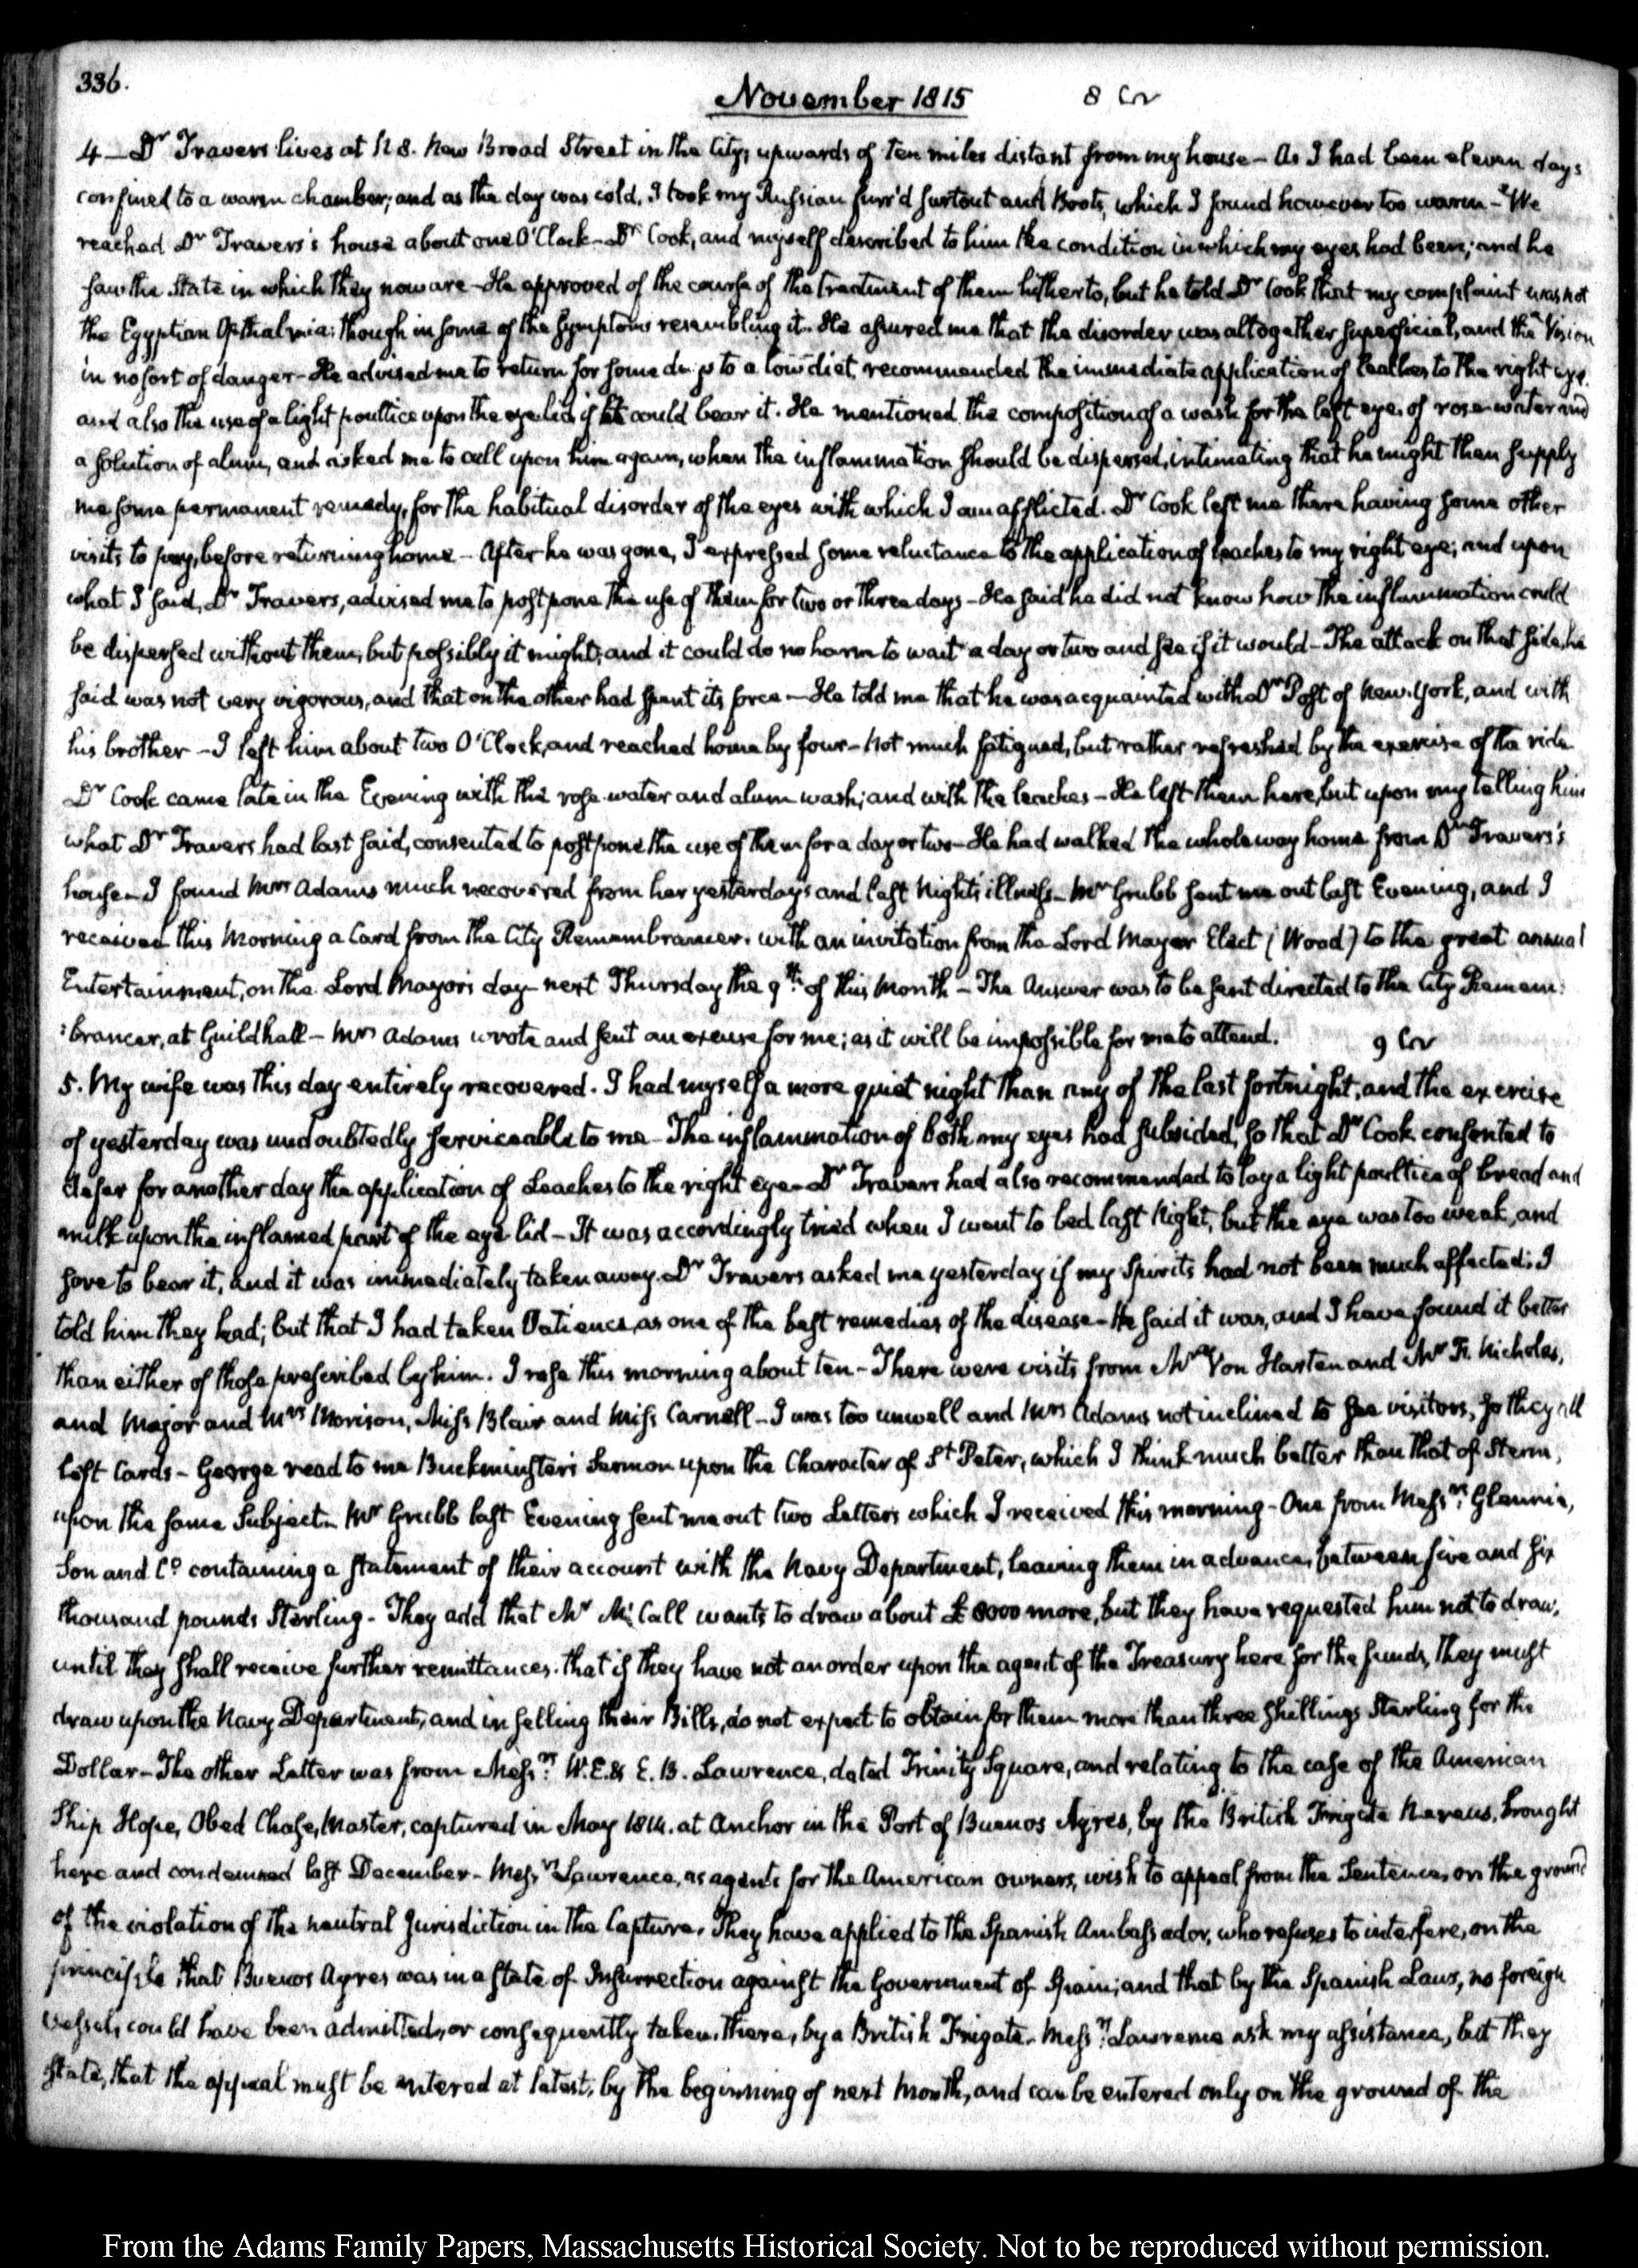 336.
November 1815
4 — Dr Travers lives at N 8. New Broad Street in the City, upwards of ten miles distant from my house — As I had been eleven days
confined to a warm chamber; and as the day was cold, I took my Russian furr'd surtout and Boots, which I found however too warm — We
reached Dr Travers's house about one O'Clock — Dr Cook, and myself described to him the condition in which my eyes had been; and he
saw the State in which they now are — He approved of the course of the treatment of them hitherto, but he told Dr Cook that my complaint was not
the Egyptian Opthalmia: though in some of the symptoms resembling it. He assured me that the disorder was altogether superficial, and the Vision
in no sort of danger — He advised me to return for some days to a low diet, recommended the immediate application of leaches to the right eye.
and also the use of a light poultice upon the eye lid if it could bear it. He mentioned the composition of a wash for the left eye, of rose-water and
a solution of alum, and asked me to call upon him again, when the inflammation should be dispersed, intimating that he might then supply
me some permanent remedy, for the habitual disorder of the eyes with which I am afflicted. Dr Cook left me there having some other
visits to pay, before returning home — After he was gone, I expressed some reluctance to the application of leaches to my right eye; and upon
what I said, Dr Travers, advised me to postpone the use of them for two or three days — He said he did not know how the inflammation could
be dispersed without them, but possibly it might; and it could do no harm to wait a day or two and see if it would — The attack on that side, he
said was not very vigorous, and that on the other had spent its force — He told me that he was acquainted with Dr Post of New-York, and with
his brother — I left him about two O'Clock, and reached home by four — Not much fatigued, but rather refreshed by the exercise of the ride
Dr Cook came late in the Evening with the rose-water and alum wash; and with the leaches — He left them here, but upon my telling him
what Dr Travers had last said, consented to postpone the use of them for a day or two — He had walked the whole way home from Dr Travers's
house — I found Mrs Adams much recovered from her yesterday's and last Night's illness — Mr Grubb sent me out last Evening, and I
received this Morning a Card from the City Remembrancer, with an invitation from the Lord Mayor Elect (Wood) to the great annual
Entertainment, on the Lord Mayor's day — next Thursday the 9th of this Month — The Answer was to be sent directed to the City Remem:
:brancer, at Guildhall — Mrs Adams wrote and sent an excuse for me; as it will be impossible for me to attend.
5. My wife was this day entirely recovered. I had myself a more quiet night than any of the last fortnight, and the exercise
of yesterday was undoubtedly serviceable to me — The inflammation of both my eyes had subsided, so that Dr Cook consented to
defer for another day the application of Leaches to the right eye — Dr Travers had also recommended to lay a light poultice of bread and
milk upon the inflamed part of the eye lid — It was accordingly tried when I went to bed last Night, but the eye was too weak, and
sore to bear it, and it was immediately taken away. Dr Travers asked me yesterday if my Spirits had not been much affected: I
told him they had; but that I had taken Patience, as one of the best remedies of the disease — He said it was, and I have found it better
than either of those prescribed by him. I rose this morning about ten — There were visits from Mr Von Harten and Mr Fr. Nicholas,
and Major and Mrs Morison, Miss Blair and Miss Carnell — I was too unwell and Mrs Adams not inclined to see visitors, so they all
left Cards — George read to me Buckminster's Sermon upon the Character of St Peter, which I think much better than that of Sterne,
upon the same Subject — Mr Grubb last Evening sent me out two Letters which I received this morning — One from Messrs Glennie,
Son and Co. containing a statement of their account with the Navy Department, leaving them in advance, between five and six
thousand pounds Sterling — They add that Mr McCall wants to draw about £ 8000 more, but they have requested him not to draw,
until they shall receive further remittances. that if they have not an order upon the agent of the Treasury here for the funds, they must
draw upon the Navy Department, and in selling their Bills, do not expect to obtain for them more than three shillings Sterling for the
Dollar — The other Letter was from Messrs W. E. & E. B. Lawrence, dated Trinity Square, and relating to the case of the American
Ship Hope, Obed Chase, Master, captured in May 1814. at Anchor in the Port of Buenos Ayres, by the British Frigate Nereus, brought
here and condemned last December — Messrs Lawrence, as agents for the American owners, wish to appeal from the Sentence, on the ground
of the violation of the neutral Jurisdiction in the Capture. They have applied to the Spanish Ambassador, who refuses to interfere, on the
principle that Buenos Ayres was in a state of Insurrection against the Government of Spain; and that by the Spanish Laws, no foreign
vessels could have been admitted, or consequently taken there, by a British Frigate — Messrs Lawrence ask my assistance, but they
state, that the appeal must be entered at latest, by the beginning of next Month, and can be entered only on the ground of the
From the Adams Family Papers, Massachusetts Historical Society. Not to be reproduced without permission.